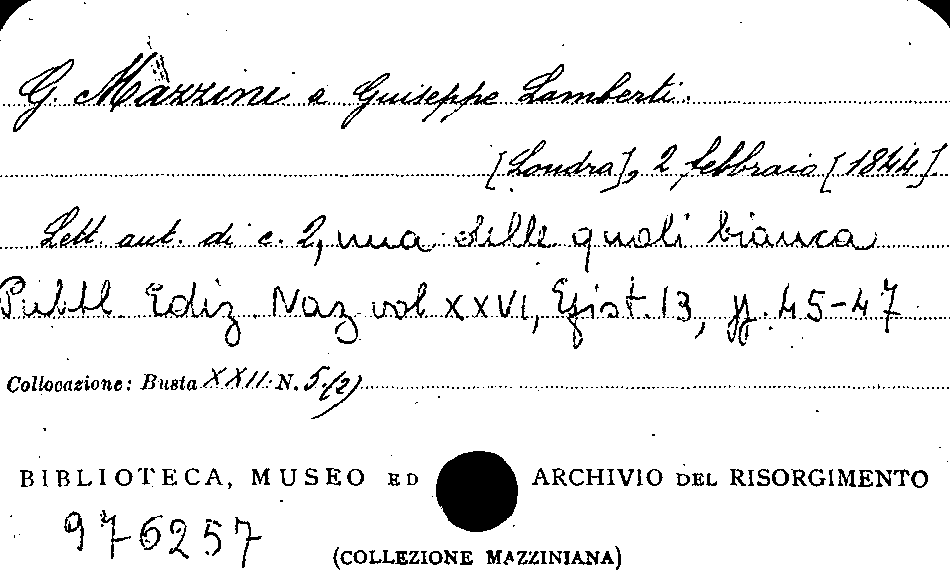 G. Mazzini a Guiseppe Lamberti.
[Londra], 2 febbraio [1844].
Lett. aut. di c. 2, una delle quali bianca
Pubbl. Ediz. Naz. vol XXVI, Epist. 13, pp. 45-47
Collocazione: Busta XXII N. 5(2)
BIBLIOTECA, MUSEO ED ARCHIVIO DEL RISORGIMENTO
976257
(COLLEZIONE MAZZINIANA)